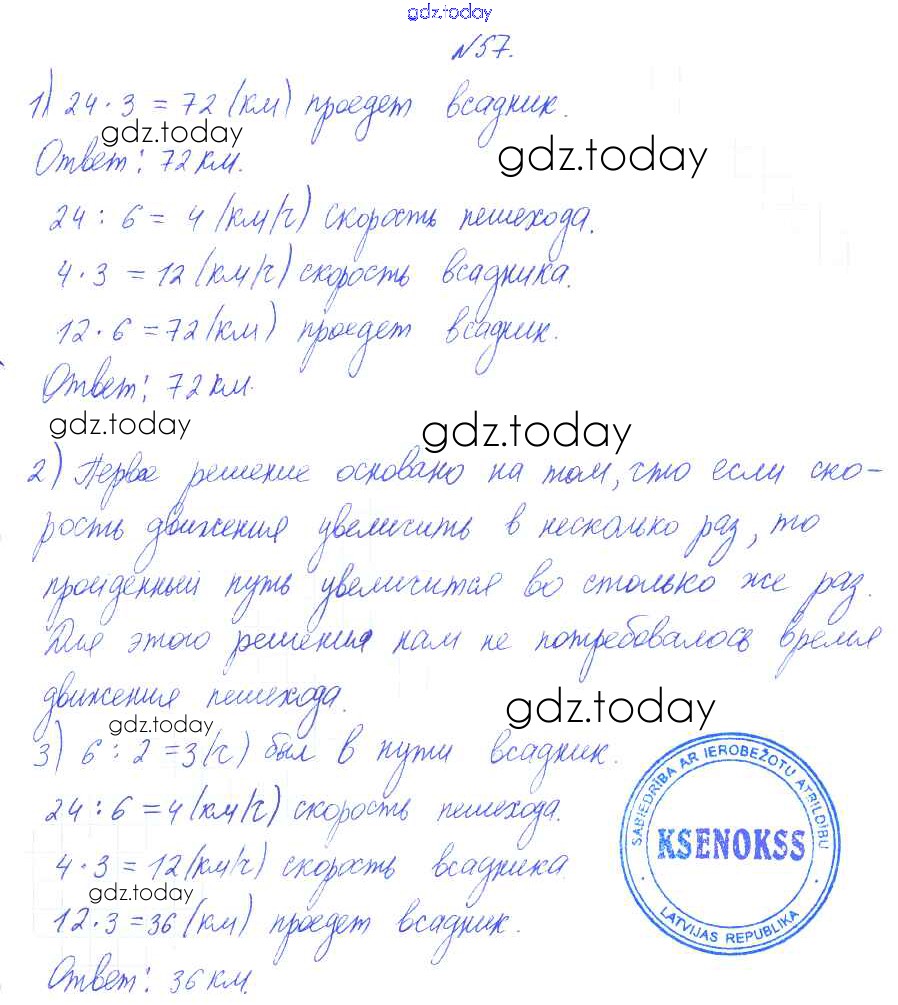 gdz.today
№57.
1) 24 · 3 = 72 (км) проедет всадник.
gdz.today
gdz.today
Ответ: 72 км.
24 : 6 = 4 (км/ч) скорость пешехода.
4 · 3 = 12 (км/ч) скорость всадника.
12 · 6 = 72 (км) проедет всадник.
Ответ: 72 км.
gdz.today
gdz.today
2) Первое решение основано на том, что если ско-
рость движения увеличить в несколько раз, то
пройденный путь увеличится во столько же раз.
Для этого решения нам не потребовалось время
движения пешехода.
gdz.today
gdz.today
3) 6 : 2 = 3 (ч) был в пути всадник.
24 : 6 = 4 (км/ч) скорость пешехода.
4 · 3 = 12 (км/ч) скорость всадника
gdz.today
12 · 3 = 36 (км) проедет всадник.
Ответ: 36 км.
SABIEDRĪBA AR IEROBEŽOTU ATBILDĪBU
KSENOKSS
LATVIJAS REPUBLIKA